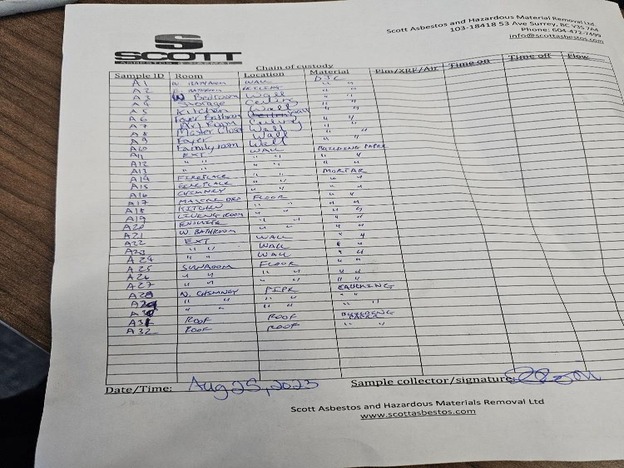 SCOTT
Scott Asbestos and Hazardous Material Removal Ltd.
103-18418 53 Ave Surrey, BC V3S 7A4
Phone: 604-472-7499
info@scottasbestos.com
Chain of custody
Sample ID Room Location Material Plm/XRF/Air Time on Time off Flow
A1 WALL DJC
A2 " "
A3 W Bedroom Wall " "
A4 Storage Ceiling " "
A5 Kitchen Walls " "
A6 Foyer " "
A7 Ceiling " "
A8 Master Closet Wall " "
A9 Foyer Wall " "
A10 Family room Wall " "
A11 EXT WALL BUILDING PAPER
A12 " " " " " "
A13 " " " " " "
A14 FIREPLACE " " MORTAR
A15 FIREPLACE " " " "
A16 CHIMNEY " " " "
A17 FLOOR " "
A18 KITCHEN " " " "
A19 LIVING ROOM " " " "
A20 " " " "
A21 W. BATHROOM " "
A22 EXT WALL " "
" " WALL " "
A24 " " WALL " "
A25 SUNROOM FLOOR " "
A26 " " " " " "
A27 " " " " " "
A28 N. CHIMNEY PIPE CAULKING
A29 " " " " " "
" " " " " "
A31 ROOF ROOF
A32 ROOF ROOF " "
Date/Time: Aug 25, 2023 Sample collector/signature:
Scott Asbestos and Hazardous Materials Removal Ltd
www.scottasbestos.com